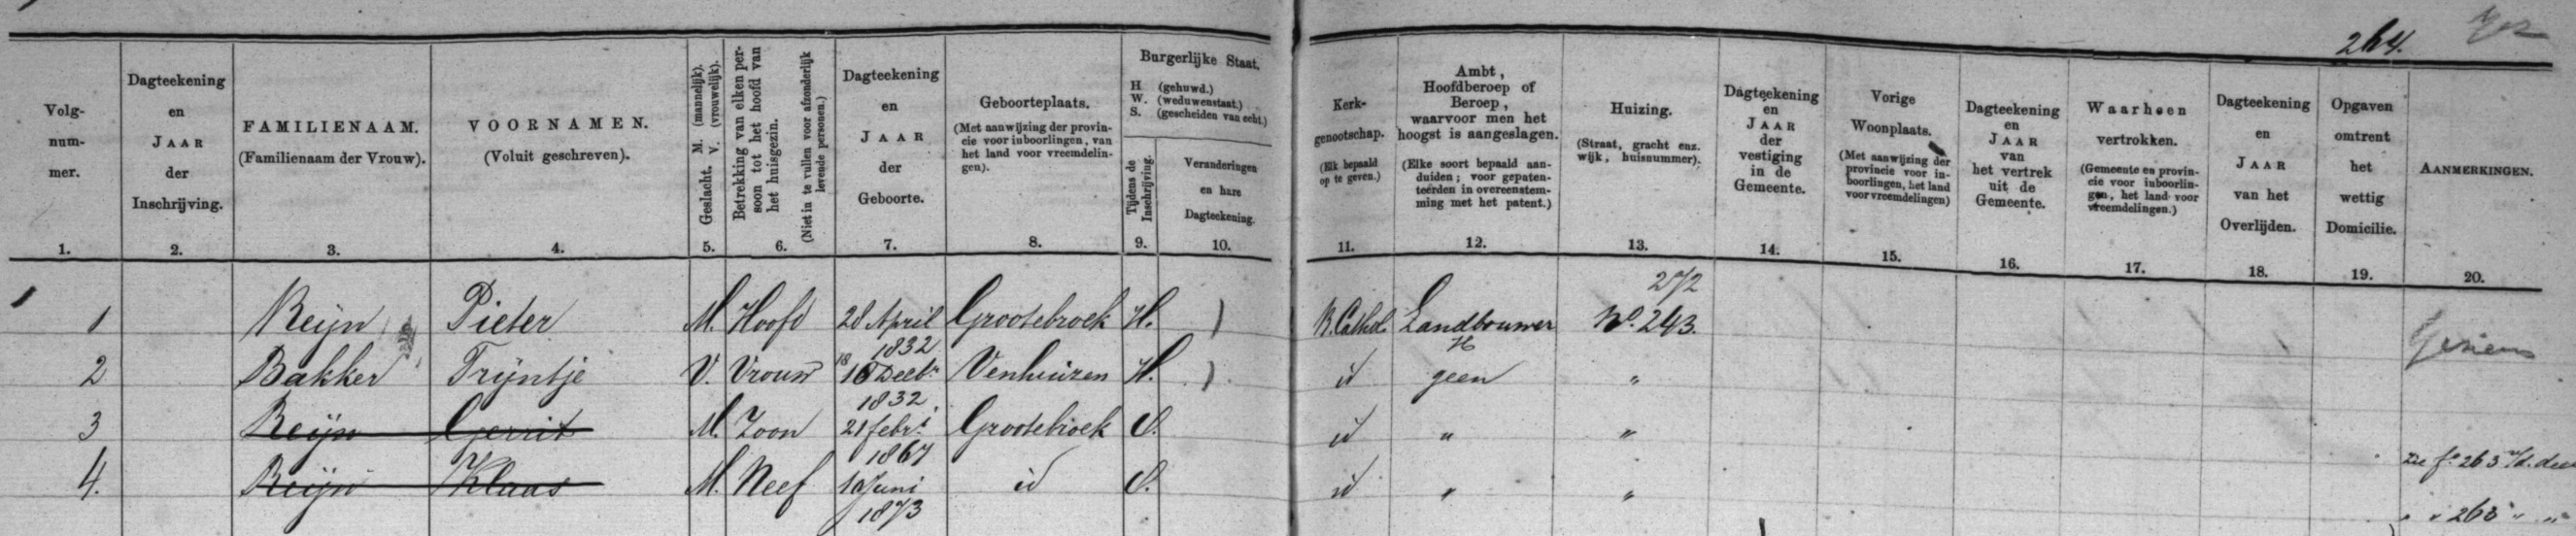 264.
Volg-
num-
mer.
1.
Dagteekening
en
JAAR
der
Inschrijving.
2.
FAMILIENAAM.
(Familienaam der Vrouw).
3.
VOORNAMEN.
(Voluit geschreven).
4.
Geslacht. M. (mannelijk).
V. (vrouwelijk).
5.
Betrekking van elken per-
soon tot het hoofd van
het huisgezin.
(Niet in te vullen voor afzonderlijk
levende personen.)
6.
Dagteekening
en
JAAR
der
Geboorte.
7.
Geboorteplaats.
(Met aanwijzing der provin-
cie voor inboorlingen, van
het land voor vreemdelin-
gen).
8.
Burgerlijke Staat.
H (gehuwd.)
W. (weduwenstaat.)
S. (gescheiden van echt.)
Tijdens de
Inschrijving.
9.
Veranderingen
en hare
Dagteekening.
10.
Kerk-
genootschap.
(Elk bepaald
op te geven.)
11.
Ambt,
Hoofdberoep of
Beroep,
waarvoor men het
hoogst is aangeslagen.
(Elke soort bepaald aan-
duiden; voor gepaten-
teerden in overeenstem-
ming met het patent.)
12.
Huizing.
(Straat, gracht enz.
wijk, huisnummer).
13.
Dagteekening
en
JAAR
der
vestiging
in de
Gemeente.
14.
Vorige
Woonplaats.
(Met aanwijzing der
provincie voor in-
boorlingen, het land
voor vreemdelingen)
15.
Dagteekening
en
JAAR
van
het vertrek
uit de
Gemeente.
16.
Waarheen
vertrokken.
(Gemeente en provin-
cie voor inboorlin-
gen, het land voor
vreemdelingen.)
17.
Dagteekening
en
JAAR
van het
Overlijden.
18.
Opgaven
omtrent
het
wettig
Domicilie.
19.
AANMERKINGEN.
20.
272
1 Reijn Pieter M. Hoofd 28 April Grootebroek H. ) R. Cathol. Landbouwer No. 243.
1832 H
2 Bakker Trijntje V. Vrouw 18 Decbr Venhuizen H. ) id geen "
1832
3 Reijn Gerrit M. Zoon 21 febri Grootebroek O. id " "
1867 Zie fo. 263 v/d. deel
4. Reijn Klaas M. Neef Juni id O. id " "
1873 " " 263 " "